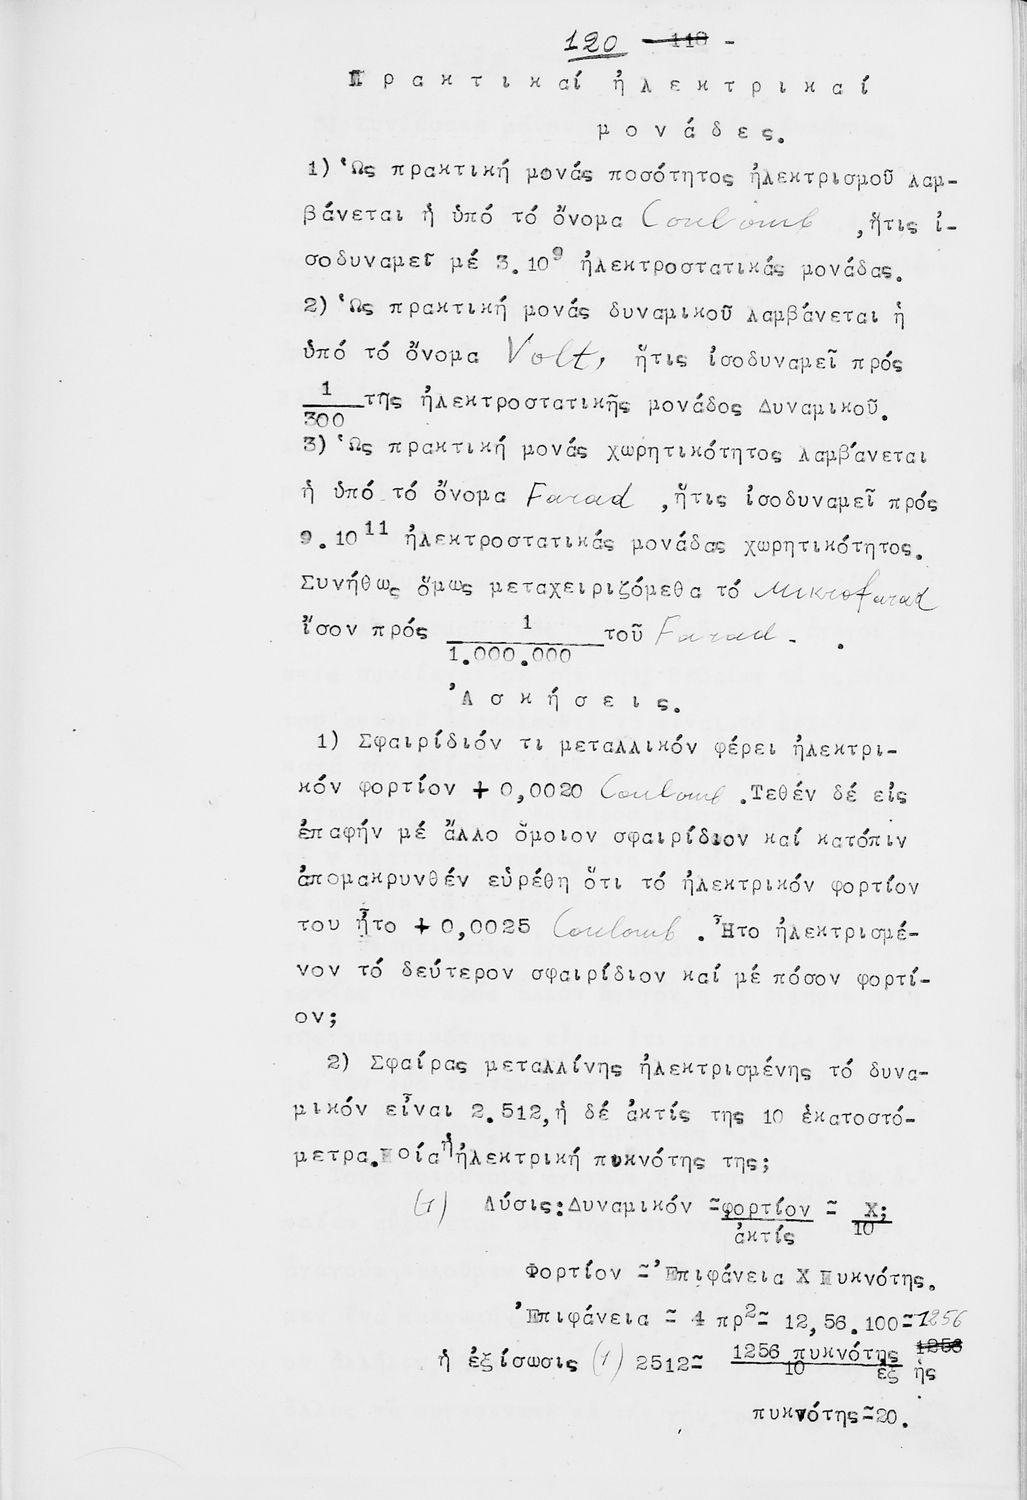 120 - 118 -
Πρακτικαί ἠλεκτρικαί
μονάδες.
1) Ὡς πρακτική μονάς ποσότητος ἠλεκτρισμοῦ λαμ-
βάνεται ἡ ὑπό τό ὄνομα Coulomb ,ἥτις ἰ-
σοδυναμεῖ μέ 3.10⁹ ἠλεκτροστατικάς μονάδας.
2) Ὡς πρακτική μονάς δυναμικοῦ λαμβάνεται ἡ
ὑπό τό ὄνομα Volt, ἥτις ἰσοδυναμεῖ πρός
1/300 τῆς ἠλεκτροστατικῆς μονάδος Δυναμικοῦ.
3) Ὡς πρακτική μονάς χωρητικότητος λαμβάνεται
ἡ ὑπό τό ὄνομα Farad ,ἥτις ἰσοδυναμεῖ πρός
9.10¹¹ ἠλεκτροστατικάς μονάδας χωρητικότητος.
Συνήθως ὅμως μεταχειριζόμεθα τό Mikrofarad
ἴσον πρός 1/1.000.000 τοῦ Farad - .
Ἀσκήσεις.
1) Σφαιρίδιόν τι μεταλλικόν φέρει ἠλεκτρι-
κόν φορτίον + 0,0020 Coulomb .Τεθέν δέ εἰς
ἐπαφήν μέ ἄλλο ὅμοιον σφαιρίδιον καί κατόπιν
ἀπομακρυνθέν εὑρέθη ὅτι τό ἠλεκτρικόν φορτίον
του ἦτο + 0,0025 Coulomb . Ἦτο ἠλεκτρισμέ-
νον τό δεύτερον σφαιρίδιον καί μέ πόσον φορτί-
ον;
2) Σφαίρας μεταλλίνης ἠλεκτρισμένης τό δυνα-
μικόν εἶναι 2.512,ἡ δέ ἀκτίς της 10 ἑκατοστό-
μετρα.Ποία ἡ ἠλεκτρική πυκνότης της;
(1) Λύσις:Δυναμικόν = φορτίον/ἀκτίς = Χ;/10
Φορτίον = Ἐπιφάνεια Χ Πυκνότης.
Ἐπιφάνεια = 4 πρ² = 12,56.100=1256
ἡ ἐξίσωσις (1) 2512= 1256 πυκνότης/10 1256 ἐξ ἧς
πυκνότης=20.